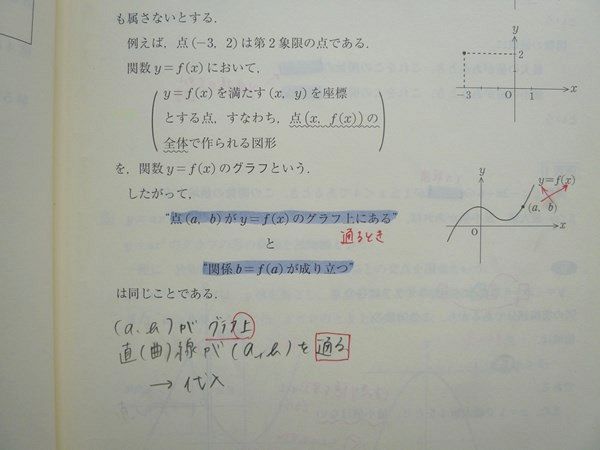 も属さないとする.
例えば, 点(−3, 2)は第2象限の点である.
関数 y=f(x) において,
y=f(x) を満たす (x, y) を座標
とする点, すなわち, 点(x, f(x))の
全体で作られる図形
を, 関数 y=f(x) のグラフという.
したがって,
“点(a, b) が y=f(x) のグラフ上にある”
通るとき
と
“関係 b=f(a) が成り立つ”
は同じことである.
(a, b) が グラフ上
直(曲)線が (a, b) を 通る
→ 代入
y
2
−3
O
1
x
y
y=f(x)
(a, b)
O
x